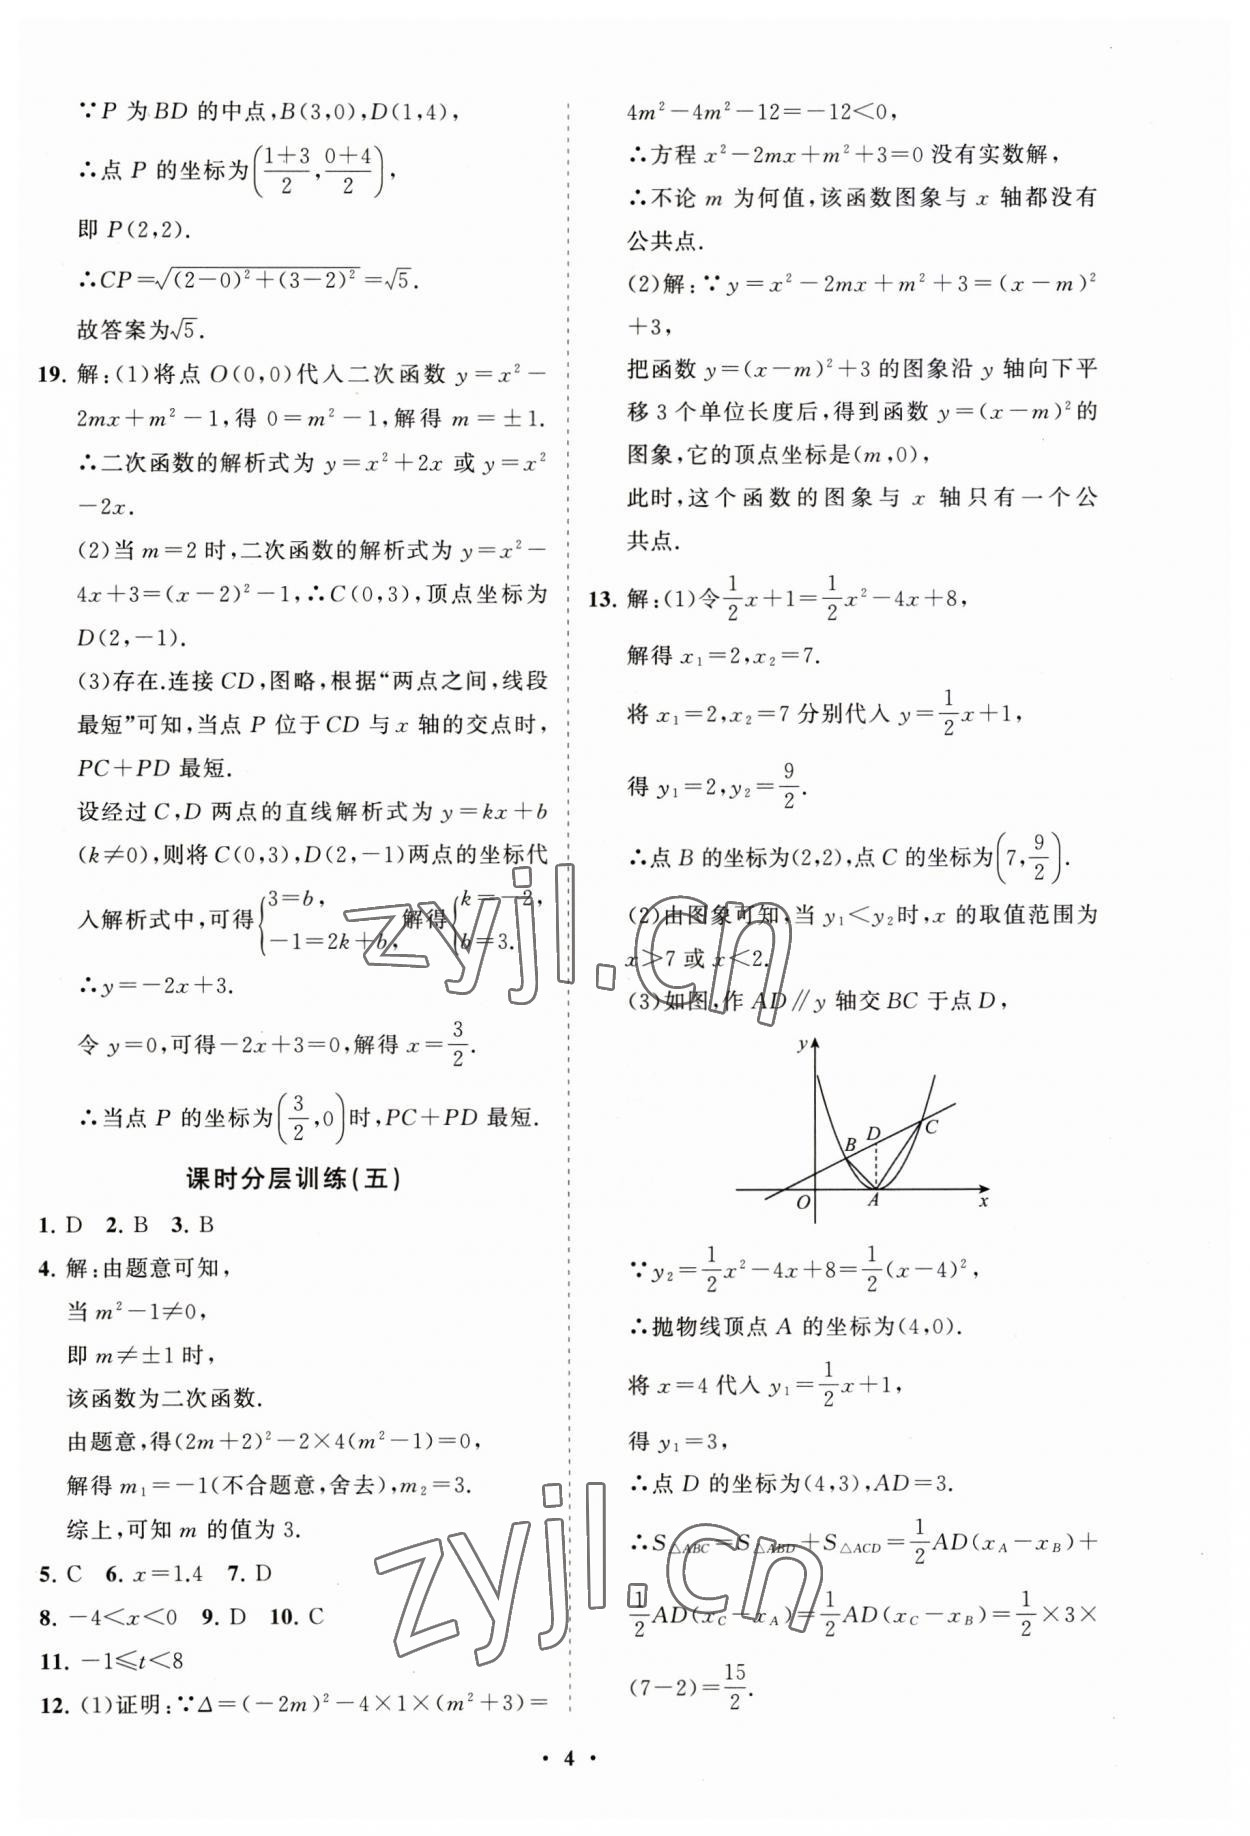 ∵P 为 BD 的中点,B(3,0),D(1,4),
∴点 P 的坐标为((1+3)/2,(0+4)/2),
即 P(2,2).
∴CP=√((2-0)²+(3-2)²)=√5.
故答案为√5.
19. 解:(1)将点 O(0,0)代入二次函数 y=x²-
2mx+m²-1,得 0=m²-1,解得 m=±1.
∴二次函数的解析式为 y=x²+2x 或 y=x²
-2x.
(2)当 m=2 时,二次函数的解析式为 y=x²-
4x+3=(x-2)²-1,∴C(0,3),顶点坐标为
D(2,-1).
(3)存在.连接 CD,图略,根据“两点之间,线段
最短”可知,当点 P 位于 CD 与 x 轴的交点时,
PC+PD 最短.
设经过 C,D 两点的直线解析式为 y=kx+b
(k≠0),则将 C(0,3),D(2,-1)两点的坐标代
入解析式中,可得{3=b, -1=2k+b, 解得{k=-2, b=3.
∴y=-2x+3.
令 y=0,可得-2x+3=0,解得 x=3/2.
∴当点 P 的坐标为(3/2,0)时,PC+PD 最短.
课时分层训练(五)
1. D 2. B 3. B
4. 解:由题意可知,
当 m²-1≠0,
即 m≠±1 时,
该函数为二次函数.
由题意,得(2m+2)²-2×4(m²-1)=0,
解得 m₁=-1(不合题意,舍去),m₂=3.
综上,可知 m 的值为 3.
5. C 6. x=1.4 7. D
8. -4<x<0 9. D 10. C
11. -1⩽t<8
12. (1)证明:∵Δ=(-2m)²-4×1×(m²+3)=
4m²-4m²-12=-12<0,
∴方程 x²-2mx+m²+3=0 没有实数解,
∴不论 m 为何值,该函数图象与 x 轴都没有
公共点.
(2)解:∵y=x²-2mx+m²+3=(x-m)²
+3,
把函数 y=(x-m)²+3 的图象沿 y 轴向下平
移 3 个单位长度后,得到函数 y=(x-m)²的
图象,它的顶点坐标是(m,0),
此时,这个函数的图象与 x 轴只有一个公
共点.
13. 解:(1)令1/2x+1=1/2x²-4x+8,
解得 x₁=2,x₂=7.
将 x₁=2,x₂=7 分别代入 y=1/2x+1,
得 y₁=2,y₂=9/2.
∴点 B 的坐标为(2,2),点 C 的坐标为(7,9/2).
(2)由图象可知,当 y₁<y₂时,x 的取值范围为
x>7 或 x<2.
(3)如图,作 AD∥y 轴交 BC 于点 D,
y
D
C
B
O
A
x
∵y₂=1/2x²-4x+8=1/2(x-4)²,
∴抛物线顶点 A 的坐标为(4,0).
将 x=4 代入 y₁=1/2x+1,
得 y₁=3,
∴点 D 的坐标为(4,3),AD=3.
∴S△ABC=S△ABD+S△ACD=1/2AD(x_A-x_B)+
1/2AD(x_C-x_A)=1/2AD(x_C-x_B)=1/2×3×
(7-2)=15/2.
• 4 •
zyjl.cn
zyjl.cn